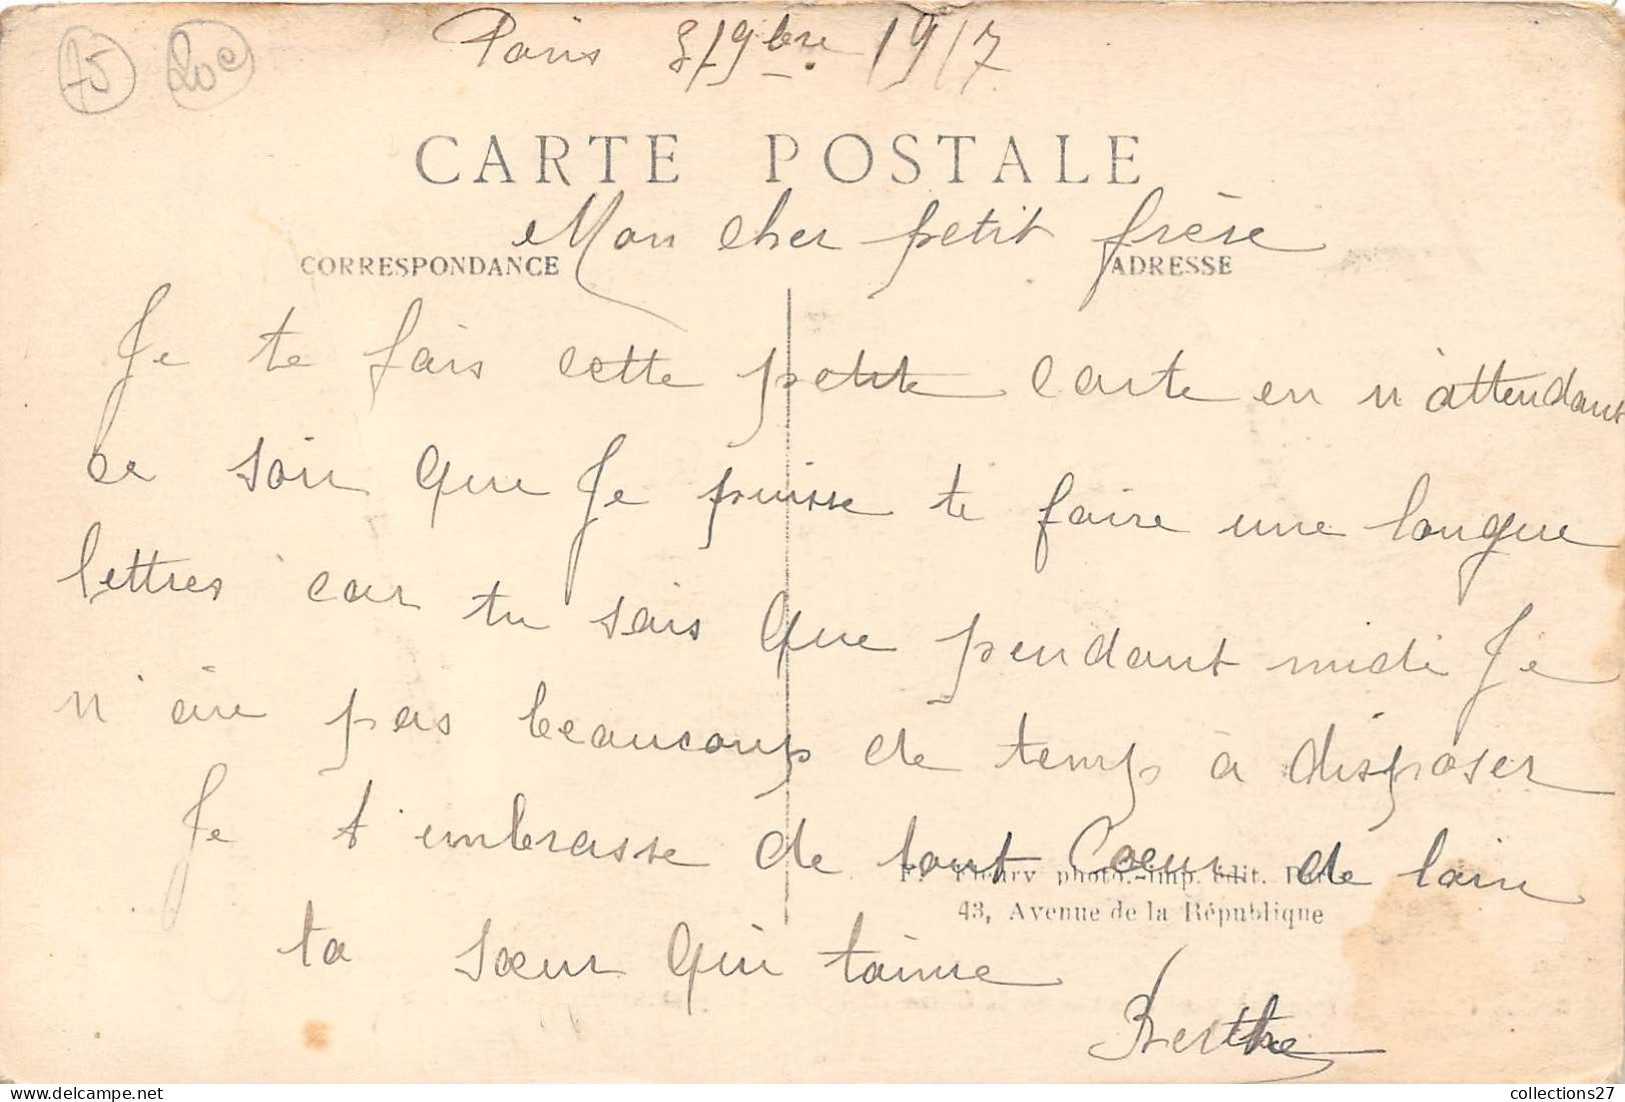 75 20e
Paris 8/9bre 1917
CARTE POSTALE
Mon cher petit frère
CORRESPONDANCE ADRESSE
Je te fais cette petite carte en n'attendant
ce soir que Je puisse te faire une longue
lettres car tu sais que pendant midi Je
n'aie pas beaucoup de temps à disposer
Je t'embrasse de tout Coeur de loin
F. Fleury photo.-imp. édit.
43, Avenue de la République
ta sœur qui taime
Berthe
collections27